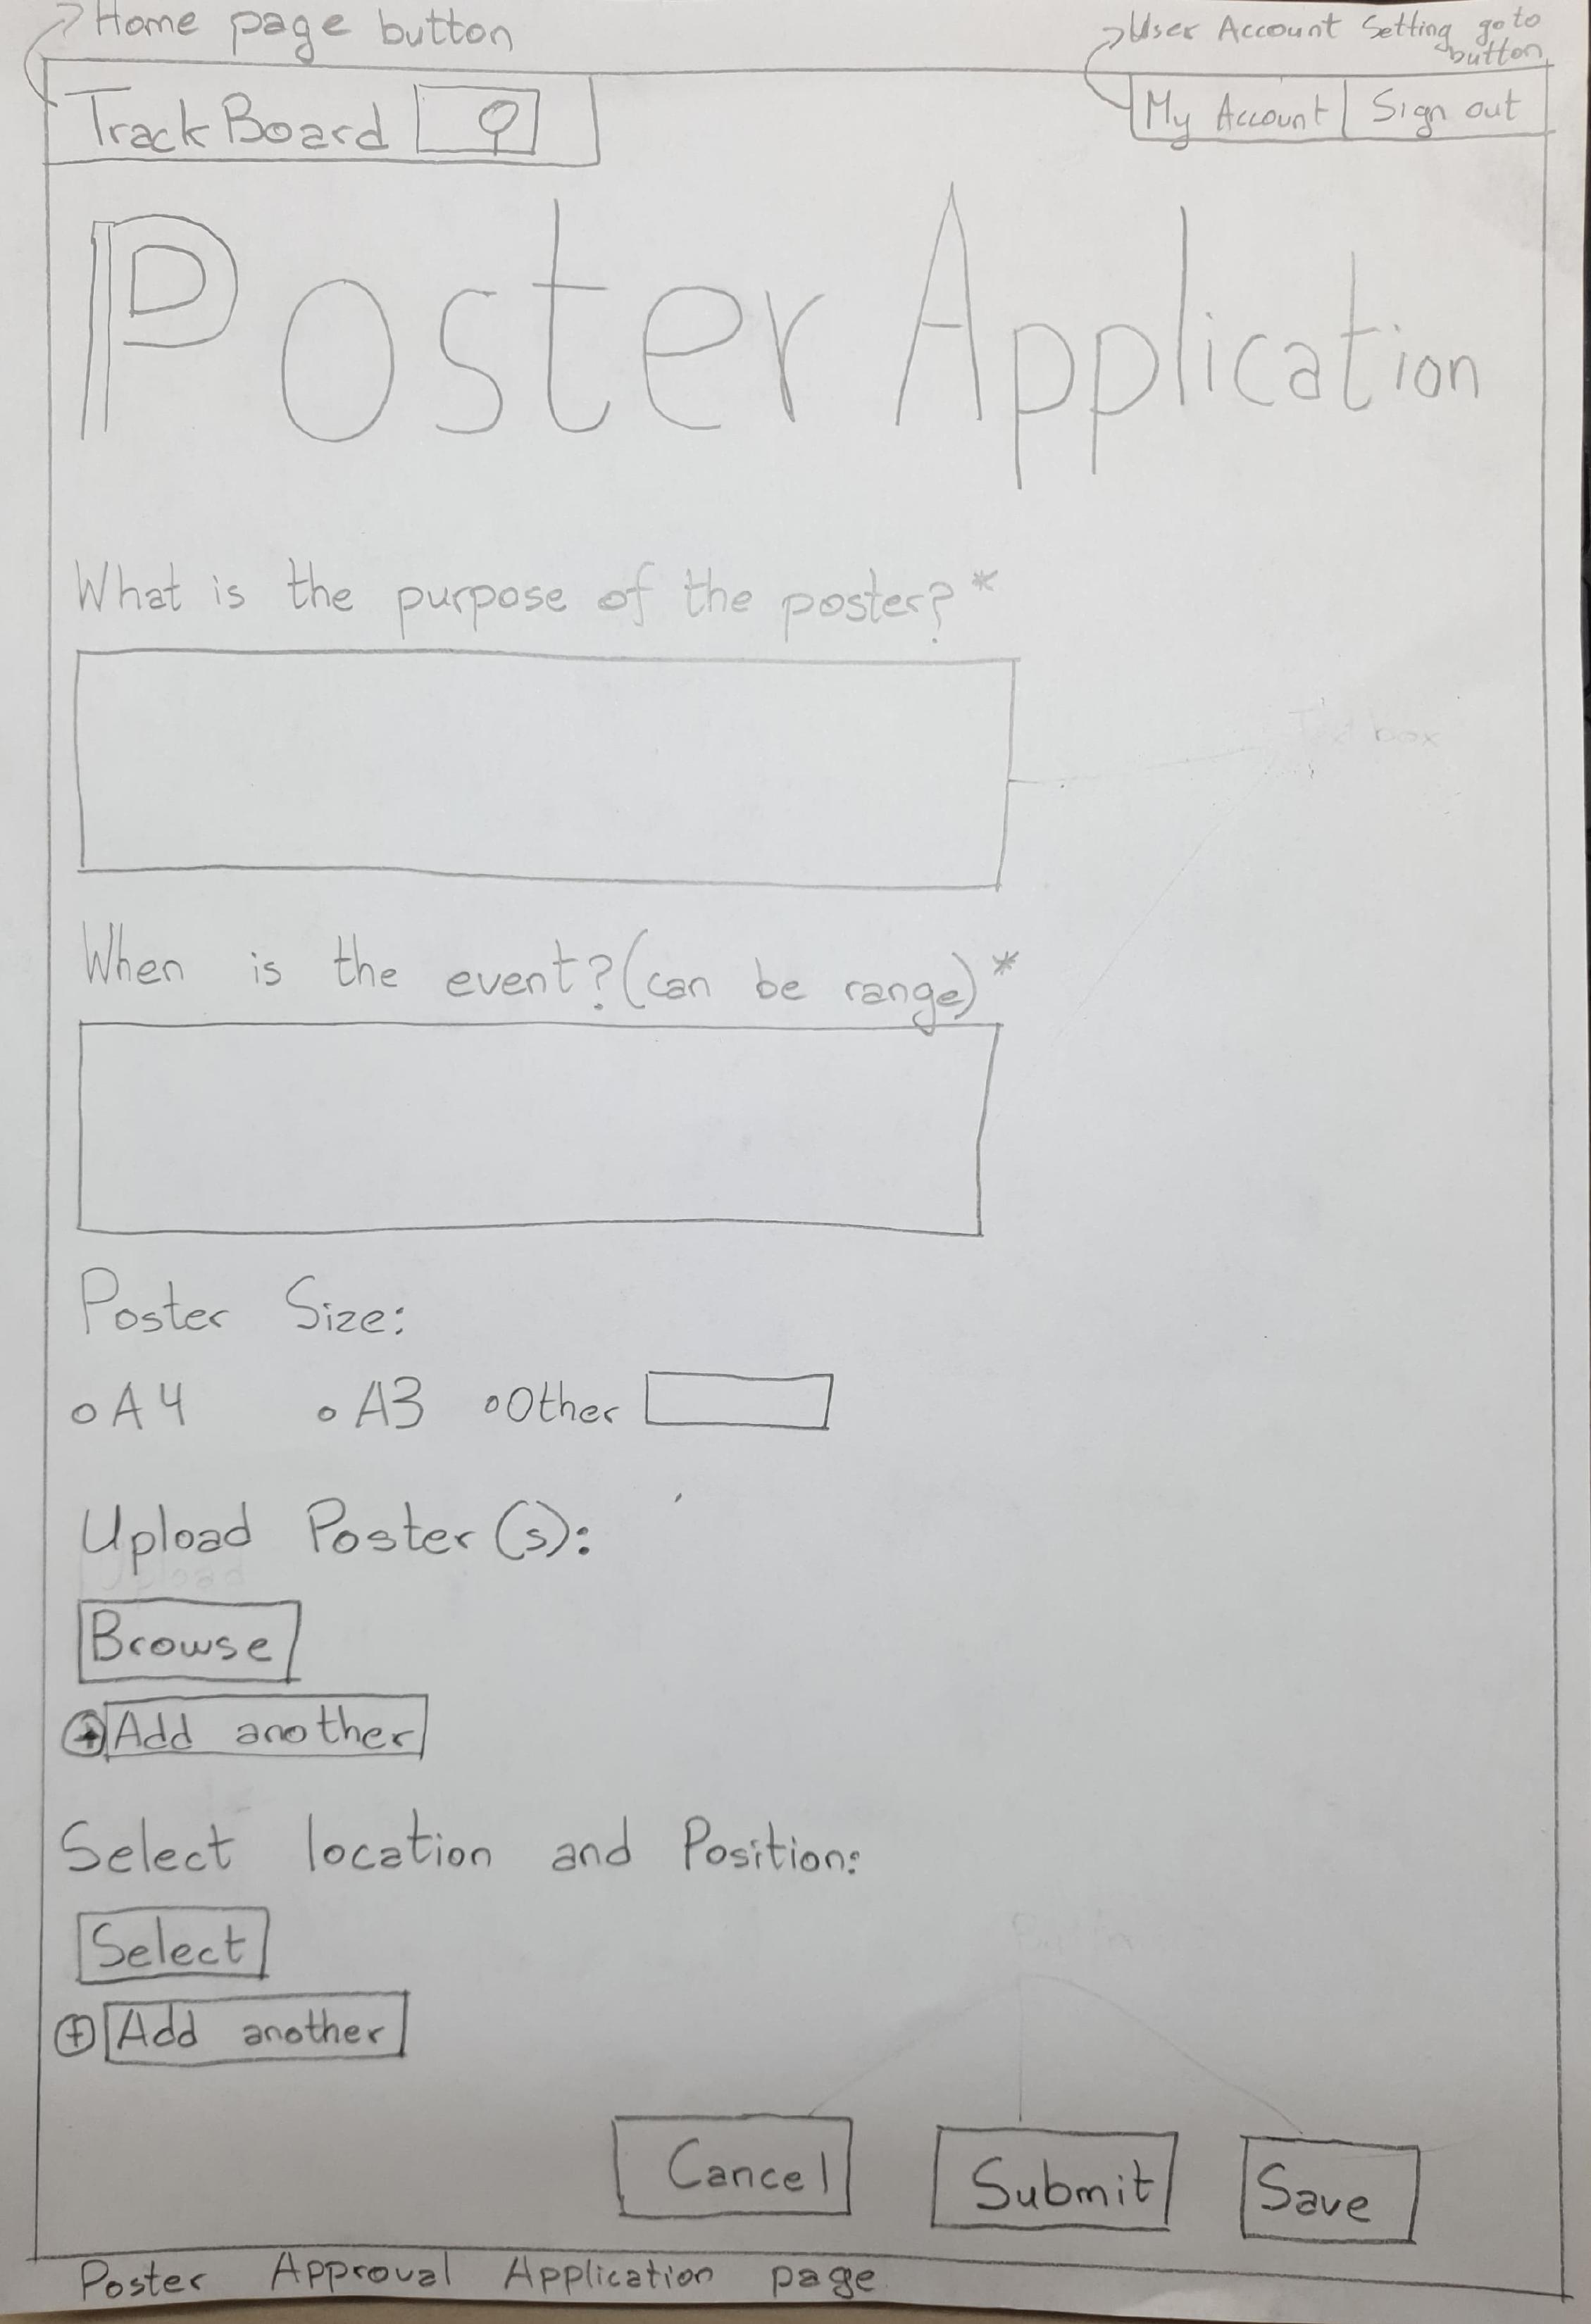 Home page button
User Account Setting go to
button
TrackBoard
My Account
Sign out
Poster Application
What is the purpose of the poster?*
box
When is the event? (can be range)*
Poster Size:
A4
A3
Other
Upload Poster(s):
Upload
Browse
+ Add another
Select location and Position:
Select
+ Add another
Cancel
Submit
Save
Poster Approval Application page